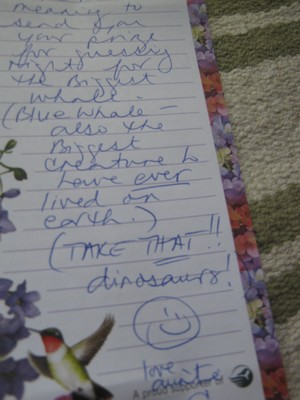 meaning to
send you
your prize
for guessing
right for
the Biggest
whale.
(Blue whale -
also the
Biggest
creature to
have ever
lived on
earth.)
(TAKE THAT!!
dinosaurs!
love
A proud supporter of